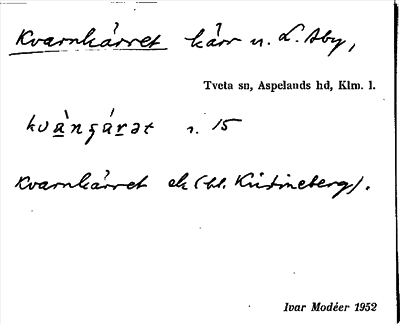 Kvarnkärret kärr n. L. Aby,
Tveta sn, Aspelands hd, Klm. l.
n. 15
Kvarnkärret ek (bl. Kristineberg).
Ivar Modéer 1952